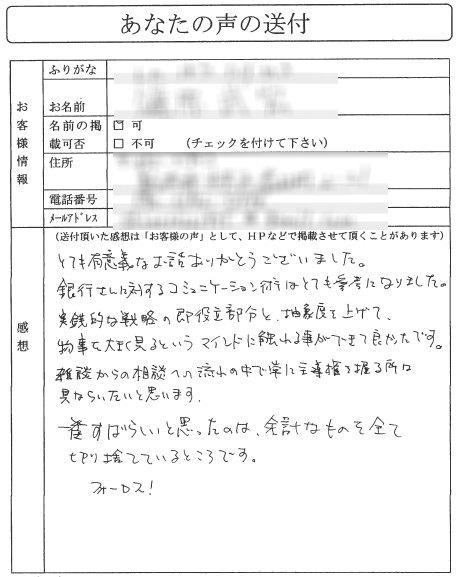 あなたの声の送付
お客様情報
ふりがな
お名前
名前の掲載可否
可
不可 (チェックを付けて下さい)
住所
電話番号
メールアドレス
感想
(送付頂いた感想は「お客様の声」として、HPなどで掲載させて頂くことがあります)
とても有意義なお話ありがとうございました。
銀行さんに対するコミュニケーション術はとても参考になりました。
実践的な戦略の即役立部分と、抽象度を上げて、
物事を大きく見るというマインドに触れる事ができて良かったです。
雑談からの相談への流れの中で常に主導権を握る所は
見ならいたいと思います。
一番すばらしいと思ったのは、余計なものを全て
切り捨てているところです。
フォーロス!